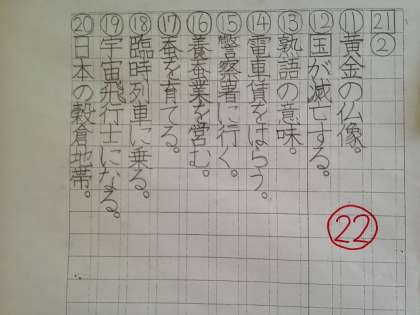 21 ②
⑪黄金の仏像。
⑫国が滅亡する。
⑬熟語の意味。
⑭電車賃をはらう。
⑮警察署に行く。
⑯養蚕業を営む。
⑰蚕を育てる。
⑱臨時列車に乗る。
⑲宇宙飛行士になる。
⑳日本の穀倉地帯。
22